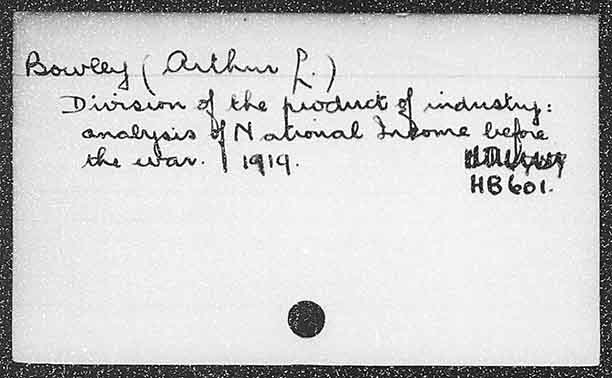 Bowley (Arthur L.)
Division of the product of industry:
analysis of National Income before
the war. 1919.
HB601.